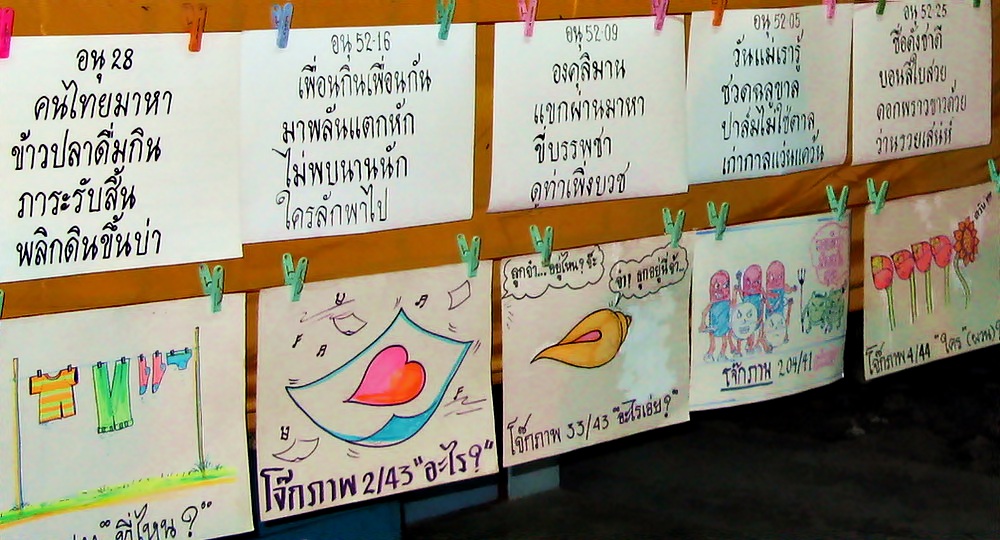 อนุ 28
คนไทยมาหา
ข้าวปลาดื่มกิน
ภาระรับสิ้น
พลิกดินขึ้นบ่า
อนุ 52-16
เพื่อนกินเพื่อนกัน
มาพลันแตกหัก
ไม่พบนานนัก
ใครลักพาไป
อนุ 52-09
องคุลิมาน
แขกผ่านมาหา
ขี่บรรพชา
ดูท่าเพิ่งบวช
อนุ 52-05
วันแม่เรารู้
ปาล์มไม่ใช่ตาล
อนุ 52-25
ชื่อดังชาติ
บอนสีใบสวย
ดอกพราวขาวด้วย
ว่านรวยเสน่ห์
"ที่ไหน ?"
โจ๊กภาพ 2/43 "อะไร?"
ลูกจ๋า...อยู่ไหน?จ๊ะ
จ๋า! ลูกอยู่นี่จ้า..
โจ๊กภาพ 33/43 "อะไรเอ่ย?"
โจ๊กภาพ 204/41
โจ๊กภาพ 4/44 "ใคร"